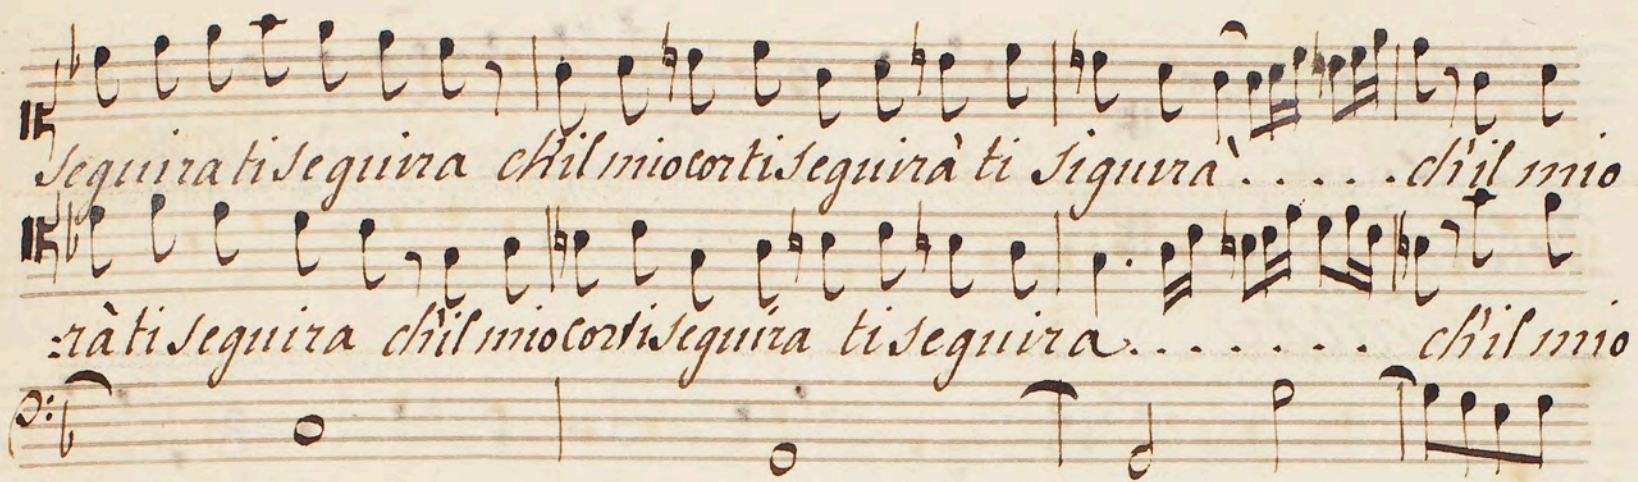 seguira ti seguira ch'il mio cor ti seguirà ti siguirà . . . . . ch'il mio
=rà ti seguira ch'il mio cor ti seguira ti seguira . . . . . . . ch'il mio